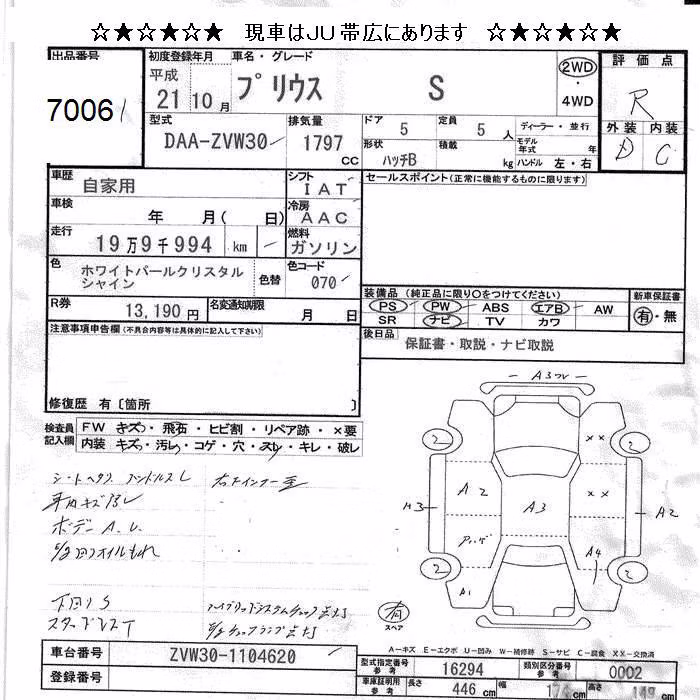 ☆★☆★☆★ 現車はJU帯広にあります ☆★☆★☆★
出品番号
70061
初度登録年月
平成
21 10 月
車名・グレード
プリウス S
2WD
4WD
評 価 点
R
外 装 内 装
D C
型式
DAA-ZVW30
排気量
1797
CC
ドア
5
定員
5 人
ディーラー・並行
モデル年式 年
形状
ハッチB
積載
kg
ハンドル 左・右
車歴
自家用
シフト
I A T
セールスポイント(正常に機能するものに限ります)
車検
年 月( 日)
冷房
A A C
走行
19 万 9 千 994 km
燃料
ガソリン
色
ホワイトパールクリスタル
シャイン
色替
色コード
070
装備品 (純正品に限り○をつけてください)
PS PW ABS エアB AW
SR ナビ TV カワ
新車保証書
有・無
R券
13,190 円
名変通知期限
月 日
後日品
保証書・取説・ナビ取説
注意事項申告欄(不具合内容等は具体的に記入して下さい)
修復歴 有〔箇所 〕
検査員
記入欄
FW キズ・飛石・ヒビ割・リペア跡・×要
内装 キズ・汚レ・コゲ・穴・スレ・キレ・破レ
シートヘタリ ハンドルスレ
ボデー A.U.
下回りS
スタッドレス
ハイブリッドシステムチェック点灯
A3
2
2
××
××
A2
A3
M3
A2
A4
A1
2
2
有
スペア
A-キズ E-エクボ U-凹み W-補修跡 S-サビ C-腐食 XX-交換済
車台番号
ZVW30-1104620
登録番号
型式指定番号
参考
16294
類別区分番号
参考
0002
車庫証明用
参考
長さ
446 cm
幅
174 cm
高さ
cm